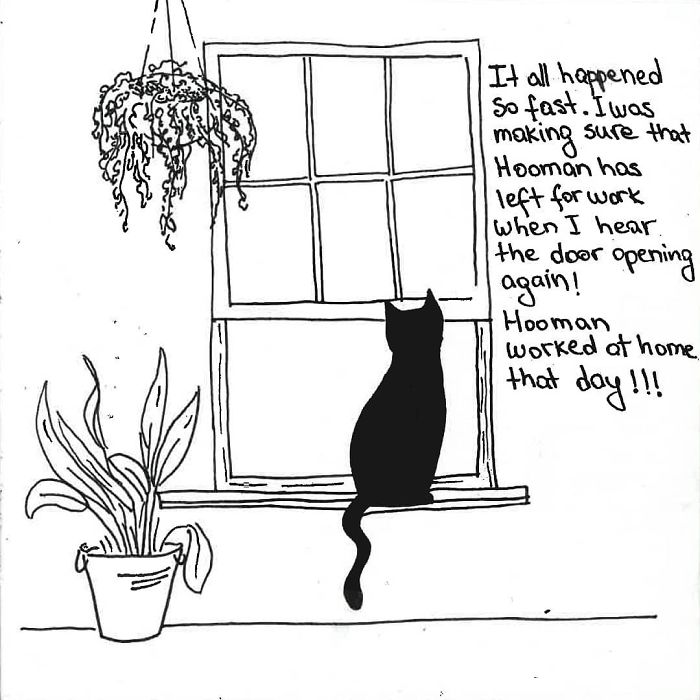 It all happened
so fast. I was
making sure that
Hooman has
left for work
when I hear
the door opening
again!
Hooman
worked at home
that day!!!